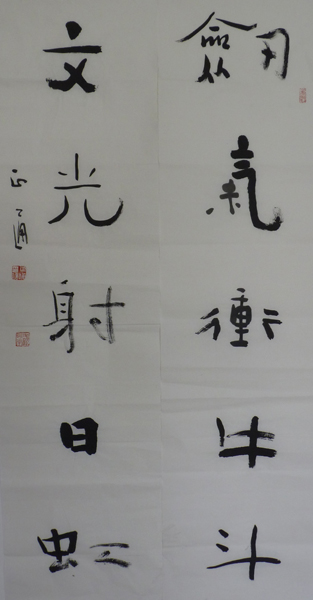 劒氣衝牛斗
文光射日虹